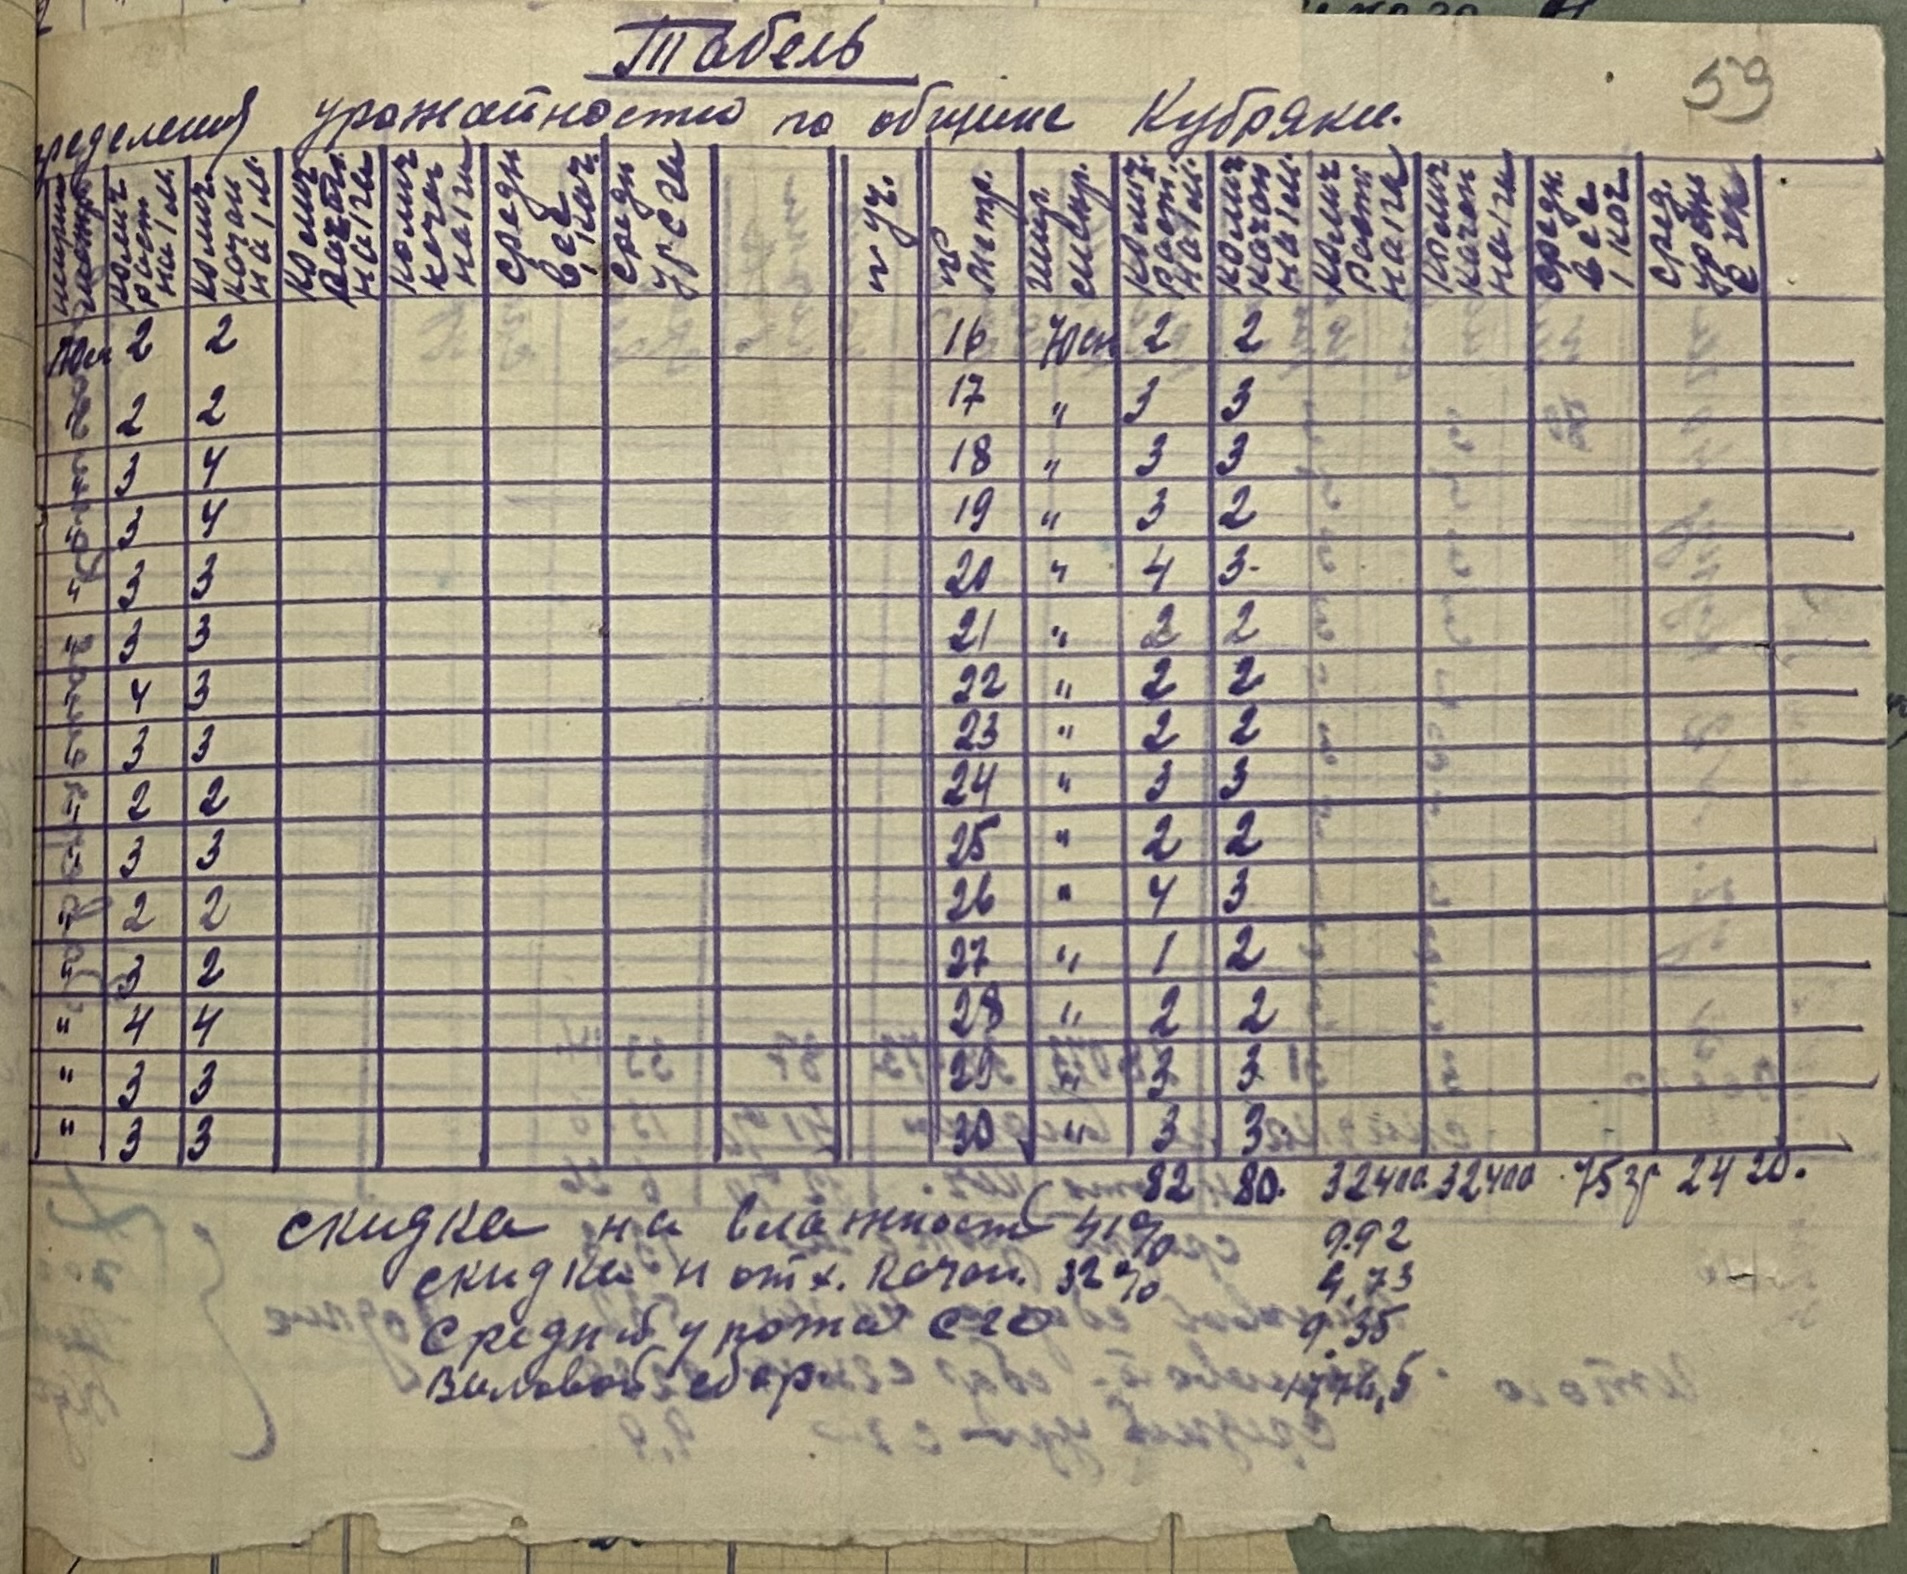 Табель
59
ределения урожайности по общине Кубряки.
колич раст на 1 м. | колич. качан на 1 м. | Колич раст. на 1 га | колич качан на 1 га | средн вес 1 кач. | средн ур с га | № уч. | № метр. | шир. | колич. раст. на 1 м. | колич качан на 1 м. | колич раст. на 1 га | колич качан на 1 га | средн. вес 1 кач. | сред. урож с 1 га
2 2 16 2 2
2 2 17 " 3 3
3 4 18 " 3 3
3 4 19 " 3 2
" 3 3 20 " 4 3
3 3 21 " 2 2
4 3 22 " 2 2
3 3 23 " 2 2
" 2 2 24 " 3 3
3 3 25 " 2 2
" 2 2 26 " 4 3
" 3 2 27 " 1 2
" 4 4 28 " 2 2
" 3 3 29 " 3 3
" 3 3 30 " 3 3
82 80. 32400 32400 75 гр 24 20.
скидка на влажность 41% 9.92
скидка н отх. качан. 32% 4,73
Средний урожай с га 9.35
Валовой сбор